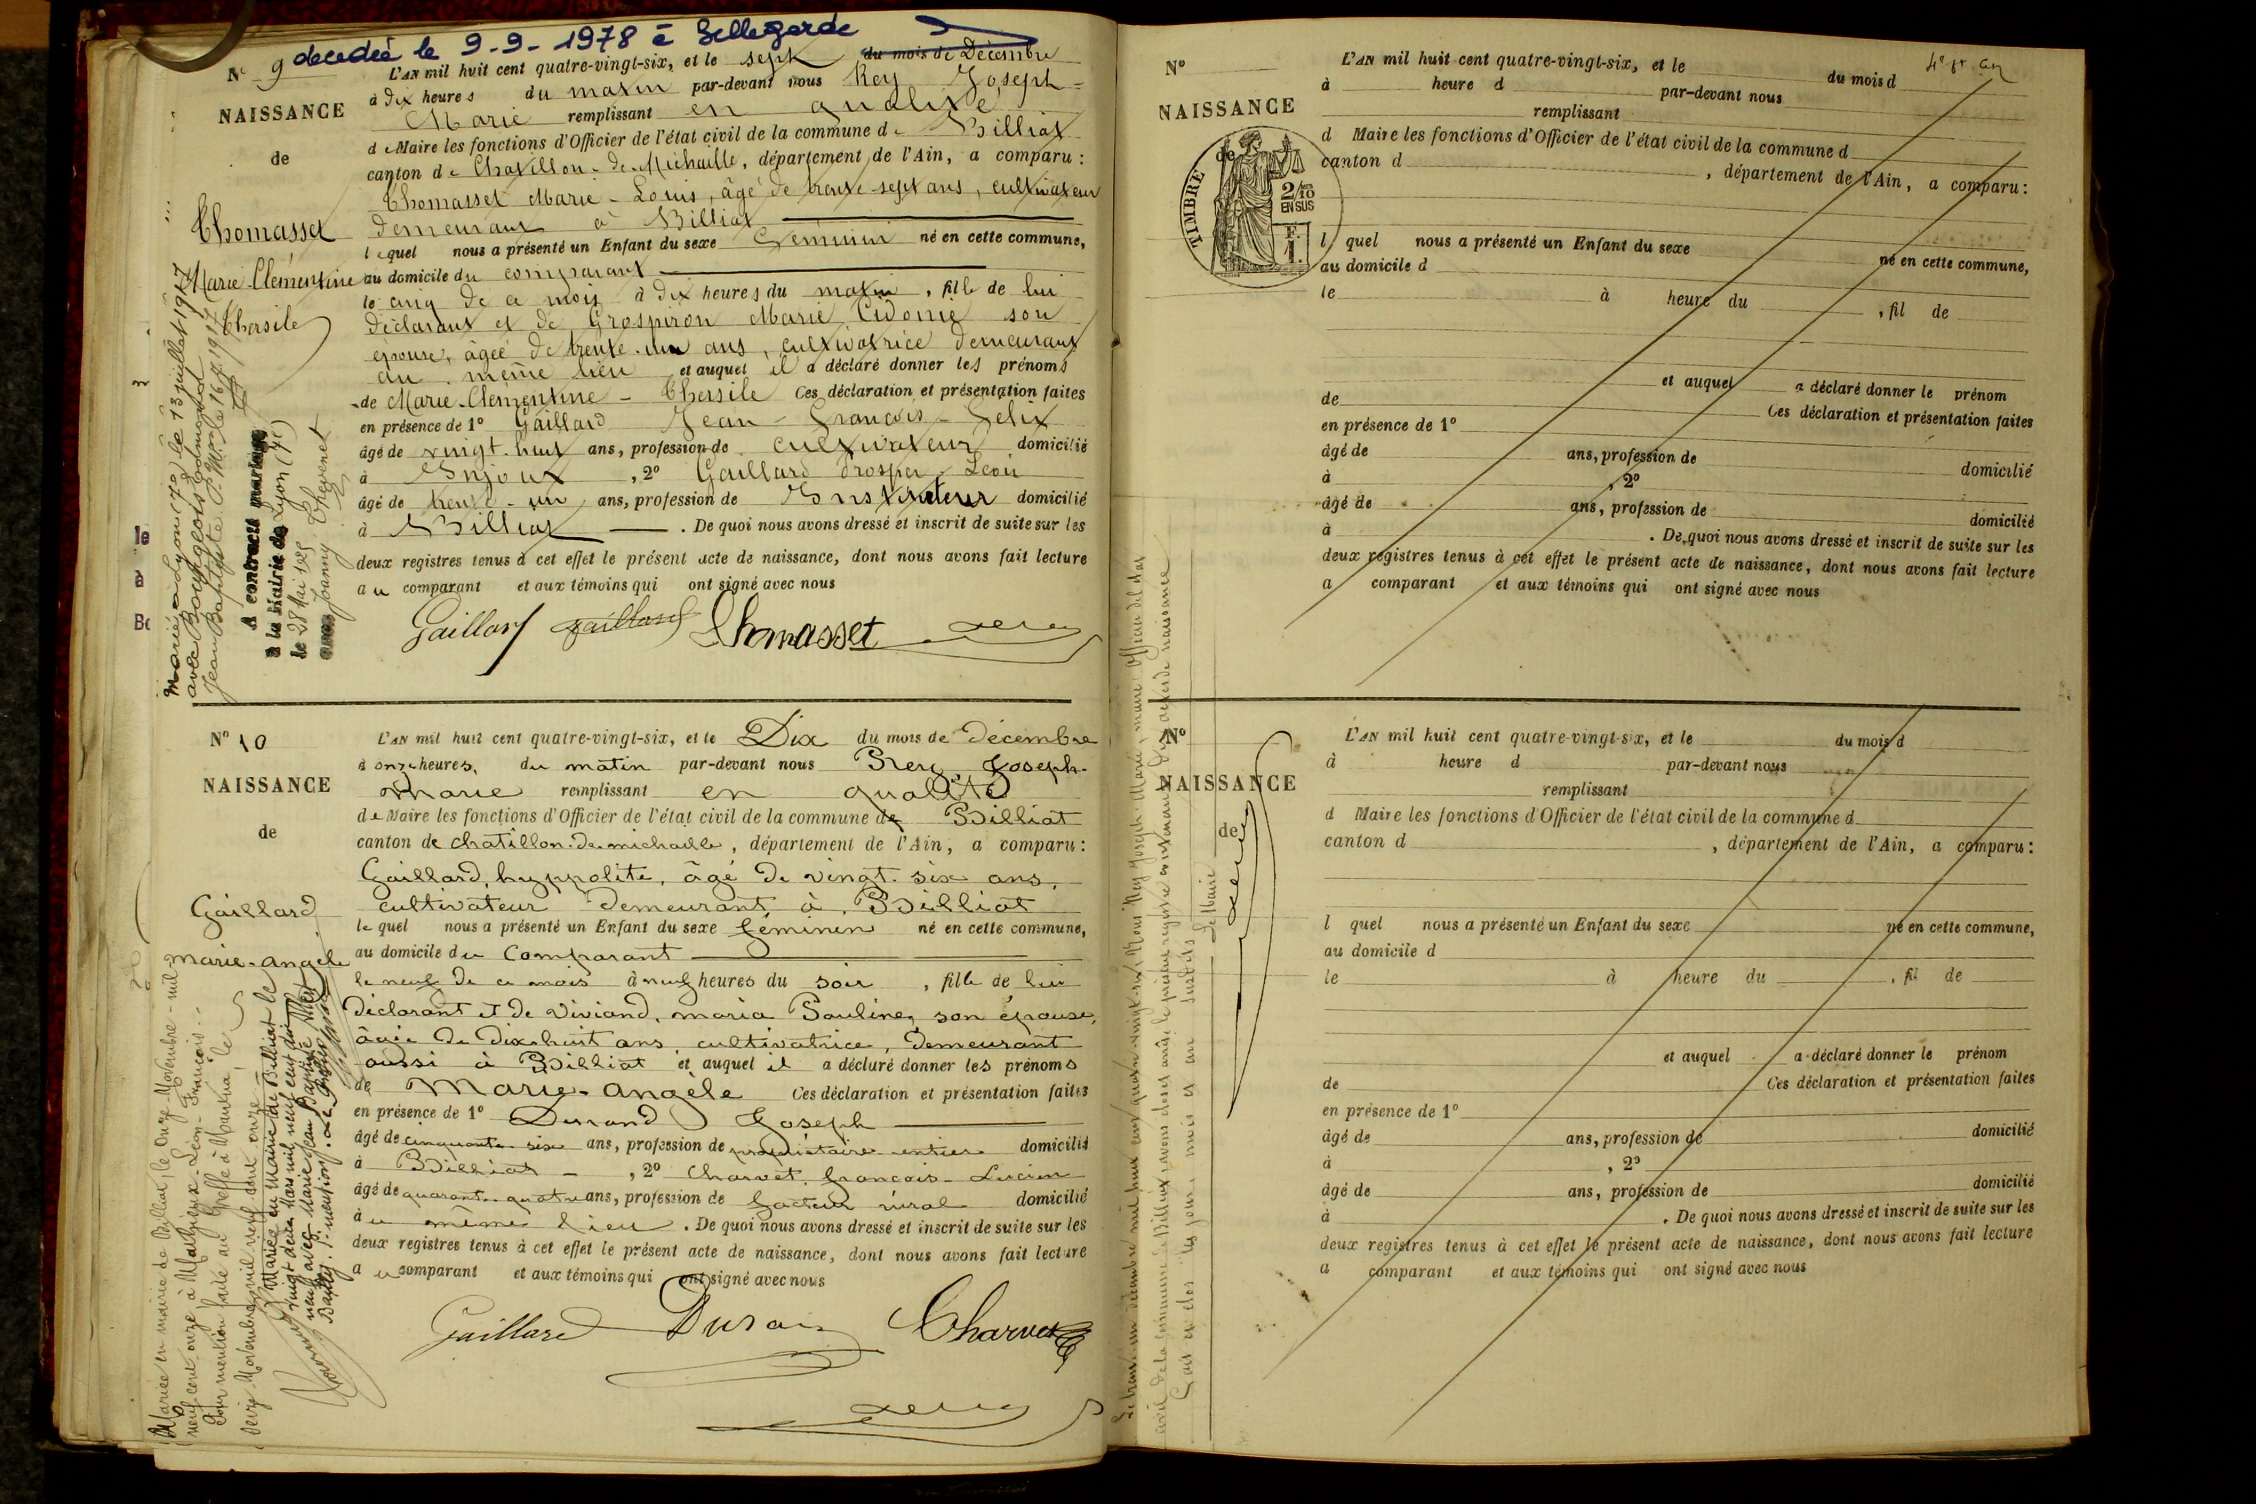 decedée le 9-9-1978 à Bellegarde
N° 9
NAISSANCE
de
Thomasset
Marie-Clémentine
Thersile
L'AN mil huit cent quatre-vingt-six, et le sept du mois de Décembre
à dix heures du matin par-devant nous Rey Joseph-
Marie remplissant en qualité
de Maire les fonctions d'Officier de l'état civil de la commune de Billiat
canton de Chatillon-de-Michaille, département de l'Ain, a comparu :
Thomasset Marie-Louis, âgé de trente-sept ans, cultivateur
demeurant à Billiat
lequel nous a présenté un Enfant du sexe Féminin né en cette commune,
au domicile du comparant
le cinq de ce mois à dix heures du matin, fille de lui
déclarant et de Grospiron Marie Sidonie son
épouse, âgée de trente-un ans, cultivatrice demeurant
au même lieu et auquel il a déclaré donner les prénoms
de Marie-Clémentine-Thersile Ces déclaration et présentation faites
en présence de 1° Gaillard Jean-François-Felix
âgé de vingt-huit ans, profession de cultivateur domicilié
à Injoux, 2° Gaillard Prosper Léon
âgé de trente-un ans, profession de Instituteur domicilié
à Billiat. De quoi nous avons dressé et inscrit de suite sur les
deux registres tenus à cet effet le présent acte de naissance, dont nous avons fait lecture
au comparant et aux témoins qui ont signé avec nous
Gaillard Gaillard Thomasset Rey
Mariée à Lyon (7e) le 13 juillet 1917
avec Bourgeois Edmond
Jean Baptiste
A contracté mariage
à la Mairie de Lyon (7e)
le 28 Mai
avec Joanny Thevenet
N° 10
NAISSANCE
de
Gaillard
Marie-Angèle
L'AN mil huit cent quatre-vingt-six, et le Dix du mois de Décembre
à onze heures, du matin par-devant nous Rey Joseph-
Marie remplissant en qualité
de Maire les fonctions d'Officier de l'état civil de la commune de Billiat
canton de chatillon-de-michaille, département de l'Ain, a comparu :
Gaillard, hyppolite, âgé de vingt-six ans,
cultivateur demeurant à Billiat
lequel nous a présenté un Enfant du sexe féminin né en cette commune,
au domicile du Comparant
le neuf de ce mois à neuf heures du soir, fille de lui
déclarant et de Viviand, maria Pauline, son épouse,
âgée de Dix-huit ans, cultivatrice, Demeurant
aussi à Billiat et auquel il a déclaré donner les prénoms
de Marie-Angèle Ces déclaration et présentation faites
en présence de 1° Durand Joseph
âgé de cinquante-six ans, profession de propriétaire rentier domicilié
à Billiat, 2° Charvet, françois-Lucien
âgé de quarante-quatre ans, profession de facteur rural domicilié
au même lieu. De quoi nous avons dressé et inscrit de suite sur les
deux registres tenus à cet effet le présent acte de naissance, dont nous avons fait lecture
au comparant et aux témoins qui ont signé avec nous
Gaillard Durand Charvet
Rey
Mariée en mairie de Billiat, le Onze Novembre-mil-
neuf cent onze à Léon-François
Pour mention faite au Greffe à Nantua, le
Novembre mil neuf cent onze
Mariée en Mairie de Billiat le
vingt deux Mars mil neuf cent dix
neuf avec Marie Jean Baptiste
Bailly. Pr. mention. Le Greffier
N°
NAISSANCE
de
TIMBRE
2/10
EN SUS
F.
1.
L'AN mil huit cent quatre-vingt-six, et le du mois d
à heure d par-devant nous
remplissant
d Maire les fonctions d'Officier de l'état civil de la commune d
canton d , département de l'Ain, a comparu :
l quel nous a présenté un Enfant du sexe né en cette commune,
au domicile d
le à heure du , fil de
et auquel a déclaré donner le prénom
de Ces déclaration et présentation faites
en présence de 1°
âgé de ans, profession de domicilié
à , 2°
âgé de ans, profession de domicilié
à . De quoi nous avons dressé et inscrit de suite sur les
deux registres tenus à cet effet le présent acte de naissance, dont nous avons fait lecture
a comparant et aux témoins qui ont signé avec nous
N°
NAISSANCE
de
L'AN mil huit cent quatre-vingt-six, et le du mois d
à heure d par-devant nous
remplissant
d Maire les fonctions d'Officier de l'état civil de la commune d
canton d , département de l'Ain, a comparu :
l quel nous a présenté un Enfant du sexe né en cette commune,
au domicile d
le à heure du , fil de
et auquel a déclaré donner le prénom
de Ces déclaration et présentation faites
en présence de 1°
âgé de ans, profession de domicilié
à , 2°
âgé de ans, profession de domicilié
à . De quoi nous avons dressé et inscrit de suite sur les
deux registres tenus à cet effet le présent acte de naissance, dont nous avons fait lecture
a comparant et aux témoins qui ont signé avec nous
Le trente-un décembre mil huit cent quatre-vingt-six, Nous Rey Joseph-Marie, maire Officier de l'état
civil de la commune de Billiat, avons clos et arrêté le présent registre contenant dix actes de naissance
Fait et clos les jour, mois et an susdits
Le Maire
Rey